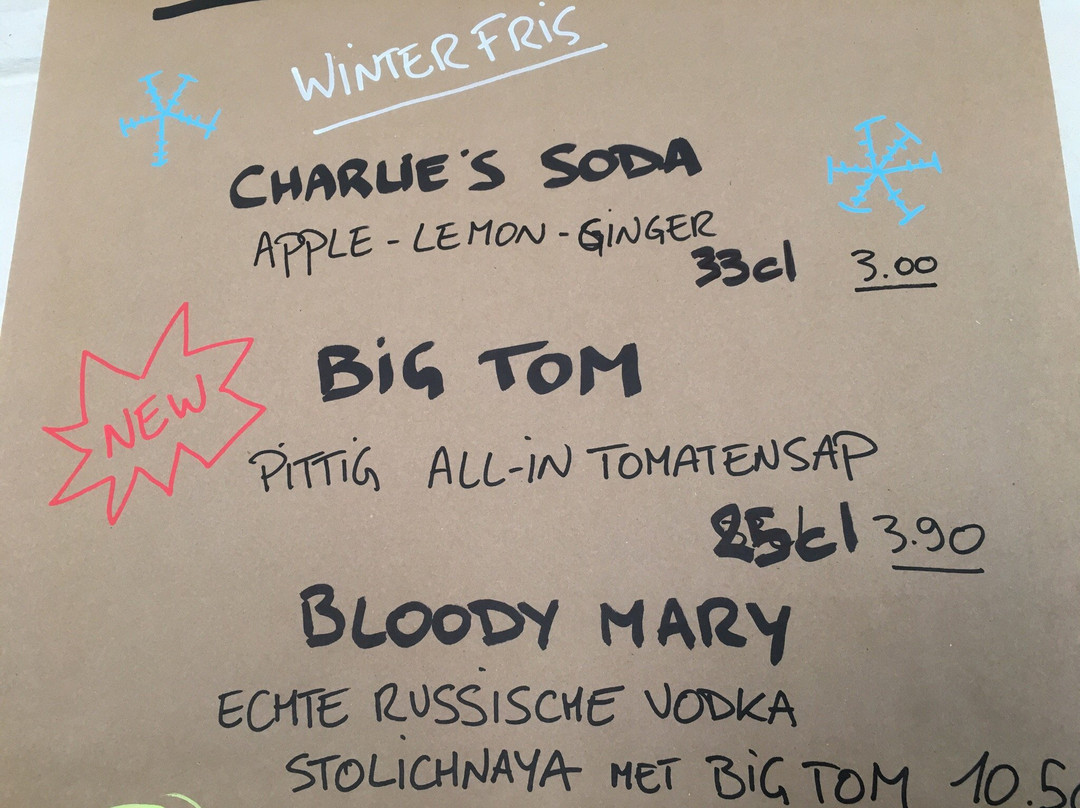 WINTER FRIS
CHARLIE'S SODA
APPLE - LEMON - GINGER
33cl 3.00
NEW
BIG TOM
PITTIG ALL-IN TOMATENSAP
25cl 3.90
BLOODY MARY
ECHTE RUSSISCHE VODKA
STOLICHNAYA MET BIG TOM